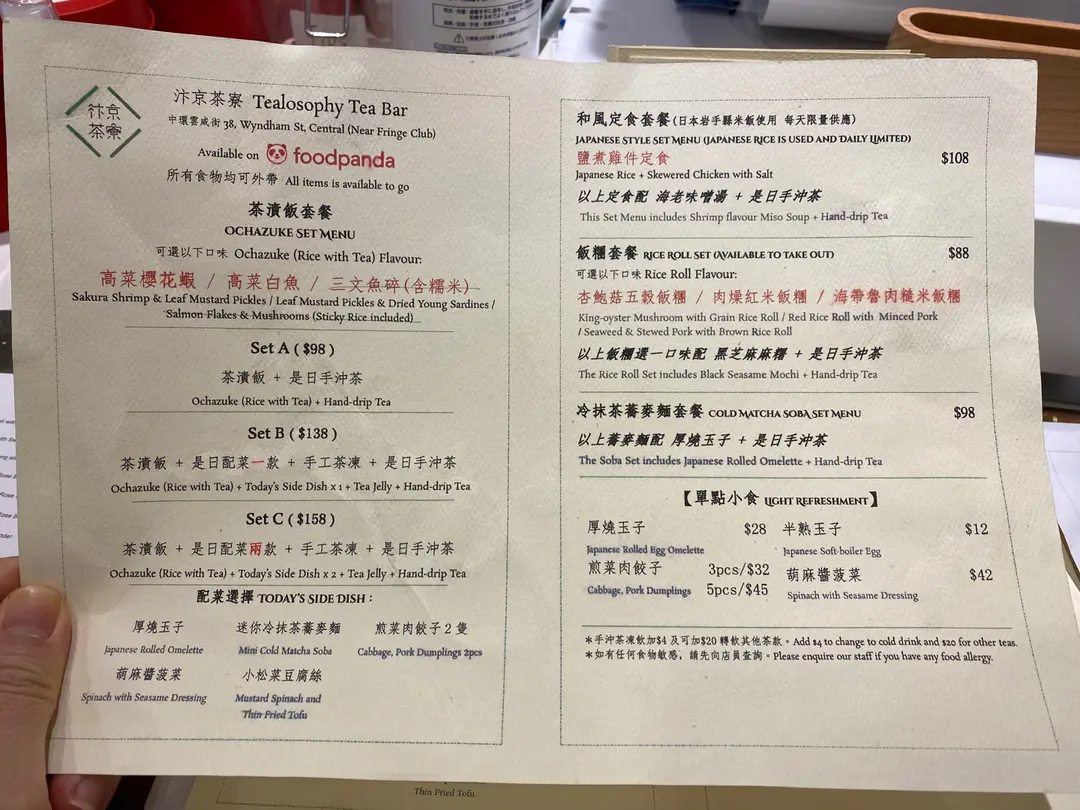 汴京
茶寮
汴京茶寮 Tealosophy Tea Bar
中環雲咸街 38, Wyndham St, Central (Near Fringe Club)
Available on foodpanda
所有食物均可外帶 All items is available to go
茶漬飯套餐
OCHAZUKE SET MENU
可選以下口味 Ochazuke (Rice with Tea) Flavour:
高菜櫻花蝦 / 高菜白魚 / 三文魚碎(含糯米)
Sakura Shrimp & Leaf Mustard Pickles / Leaf Mustard Pickles & Dried Young Sardines /
Salmon Flakes & Mushrooms (Sticky Rice included)
Set A ( $98 )
茶漬飯 + 是日手沖茶
Ochazuke (Rice with Tea) + Hand-drip Tea
Set B ( $138 )
茶漬飯 + 是日配菜一款 + 手工茶凍 + 是日手沖茶
Ochazuke (Rice with Tea) + Today's Side Dish x 1 + Tea Jelly + Hand-drip Tea
Set C ( $158 )
茶漬飯 + 是日配菜兩款 + 手工茶凍 + 是日手沖茶
Ochazuke (Rice with Tea) + Today's Side Dish x 2 + Tea Jelly + Hand-drip Tea
配菜選擇 TODAY'S SIDE DISH :
厚燒玉子 迷你冷抹茶蕎麥麵 煎菜肉餃子2隻
Japanese Rolled Omelette Mini Cold Matcha Soba Cabbage, Pork Dumplings 2pcs
胡麻醬菠菜 小松菜豆腐絲
Spinach with Seasame Dressing Mustard Spinach and
Thin Fried Tofu
和風定食套餐(日本岩手縣米飯使用 每天限量供應)
JAPANESE STYLE SET MENU (JAPANESE RICE IS USED AND DAILY LIMITED)
鹽煮雞件定食 $108
Japanese Rice + Skewered Chicken with Salt
以上定食配 海老味噌湯 + 是日手沖茶
This Set Menu includes Shrimp flavour Miso Soup + Hand-drip Tea
飯糰套餐 RICE ROLL SET (AVAILABLE TO TAKE OUT) $88
可選以下口味 Rice Roll Flavour:
杏鮑菇五穀飯糰 / 肉燥紅米飯糰 / 海帶魯肉糙米飯糰
King-oyster Mushroom with Grain Rice Roll / Red Rice Roll with Minced Pork
/ Seaweed & Stewed Pork with Brown Rice Roll
以上飯糰選一口味配 黑芝麻麻糬 + 是日手沖茶
The Rice Roll Set includes Black Seasame Mochi + Hand-drip Tea
冷抹茶蕎麥麵套餐 COLD MATCHA SOBA SET MENU $98
以上蕎麥麵配 厚燒玉子 + 是日手沖茶
The Soba Set includes Japanese Rolled Omelette + Hand-drip Tea
【單點小食 LIGHT REFRESHMENT】
厚燒玉子 $28 半熟玉子 $12
Japanese Rolled Egg Omelette Japanese Soft-boiler Egg
煎菜肉餃子 3pcs/$32 胡麻醬菠菜 $42
Cabbage, Pork Dumplings 5pcs/$45 Spinach with Seasame Dressing
*手沖茶凍飲加$4 及可加$20 轉飲其他茶款。Add $4 to change to cold drink and $20 for other teas.
*如有任何食物敏感，請先向店員查詢。Please enquire our staff if you have any food allergy.
Thin Fried Tofu